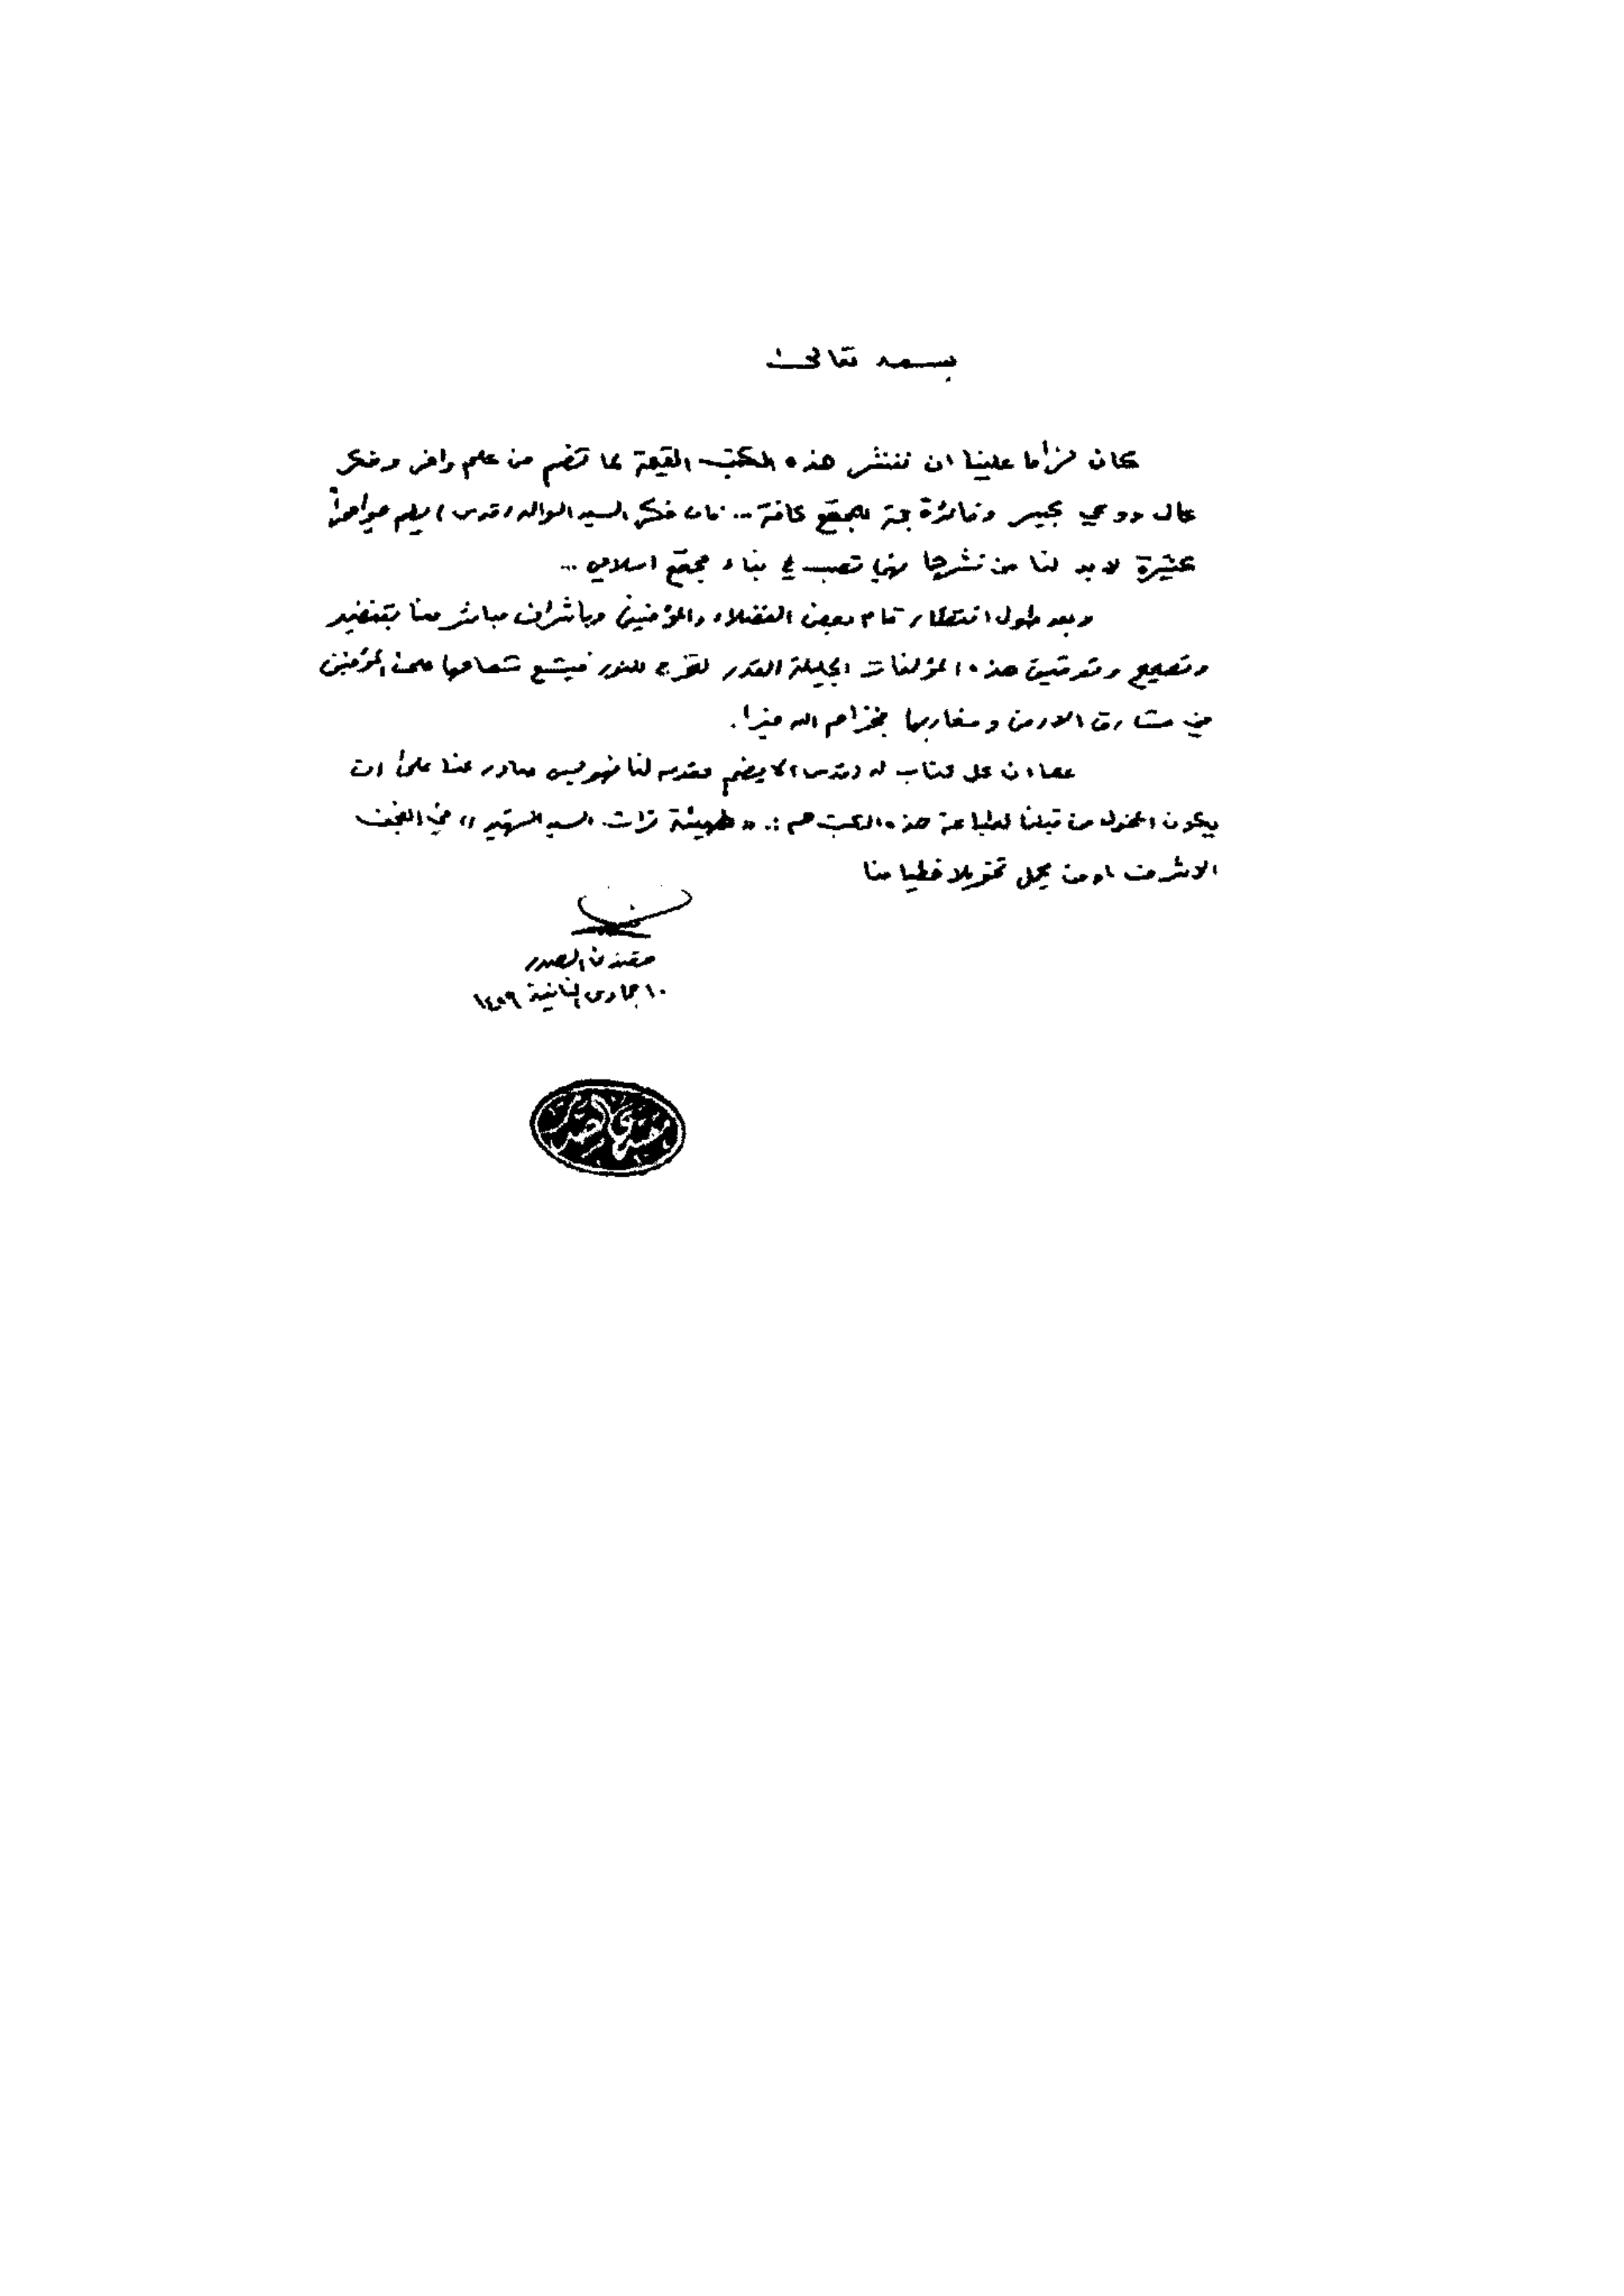 بسمه تعالى
كان لزاما علينا ان ننشر هذه الكتب القيمة لما تضم من علم وافر وفكر
عال ووعي كبير وفائدة جمة للمجتمع كافة... فان فكر السيد الوالد (قدس) يضم جواهراً
كثيرة لا بد لنا من نشرها فهي تصب في بناء مجتمع اسلامي ...
وبعد طول انتظار قام بعض الفضلاء والمؤمنين وباشراف مباشر منا بتنضيد
وتصحيح وتدقيق هذه المؤلفات الجليلة القدر لتخرج للنور فيشع شعاعها على المؤمنين
في مشارق الارض ومغاربها فجزاهم الله خيرا.
كما ان كل كتاب له (قدس) لا يضم مقدمه لنا فهو ليس صادر عنا على ان
يكون المخول من قبلنا لطباعة هذه الكتب هم :. «هيئة تراث السيد الشهيد» في النجف
الاشرف او من يحمل تخويلا خطيا منا
مقتدى الصدر
١٠ جمادى الثانية ١٤٢٩
مقتدى الصدر